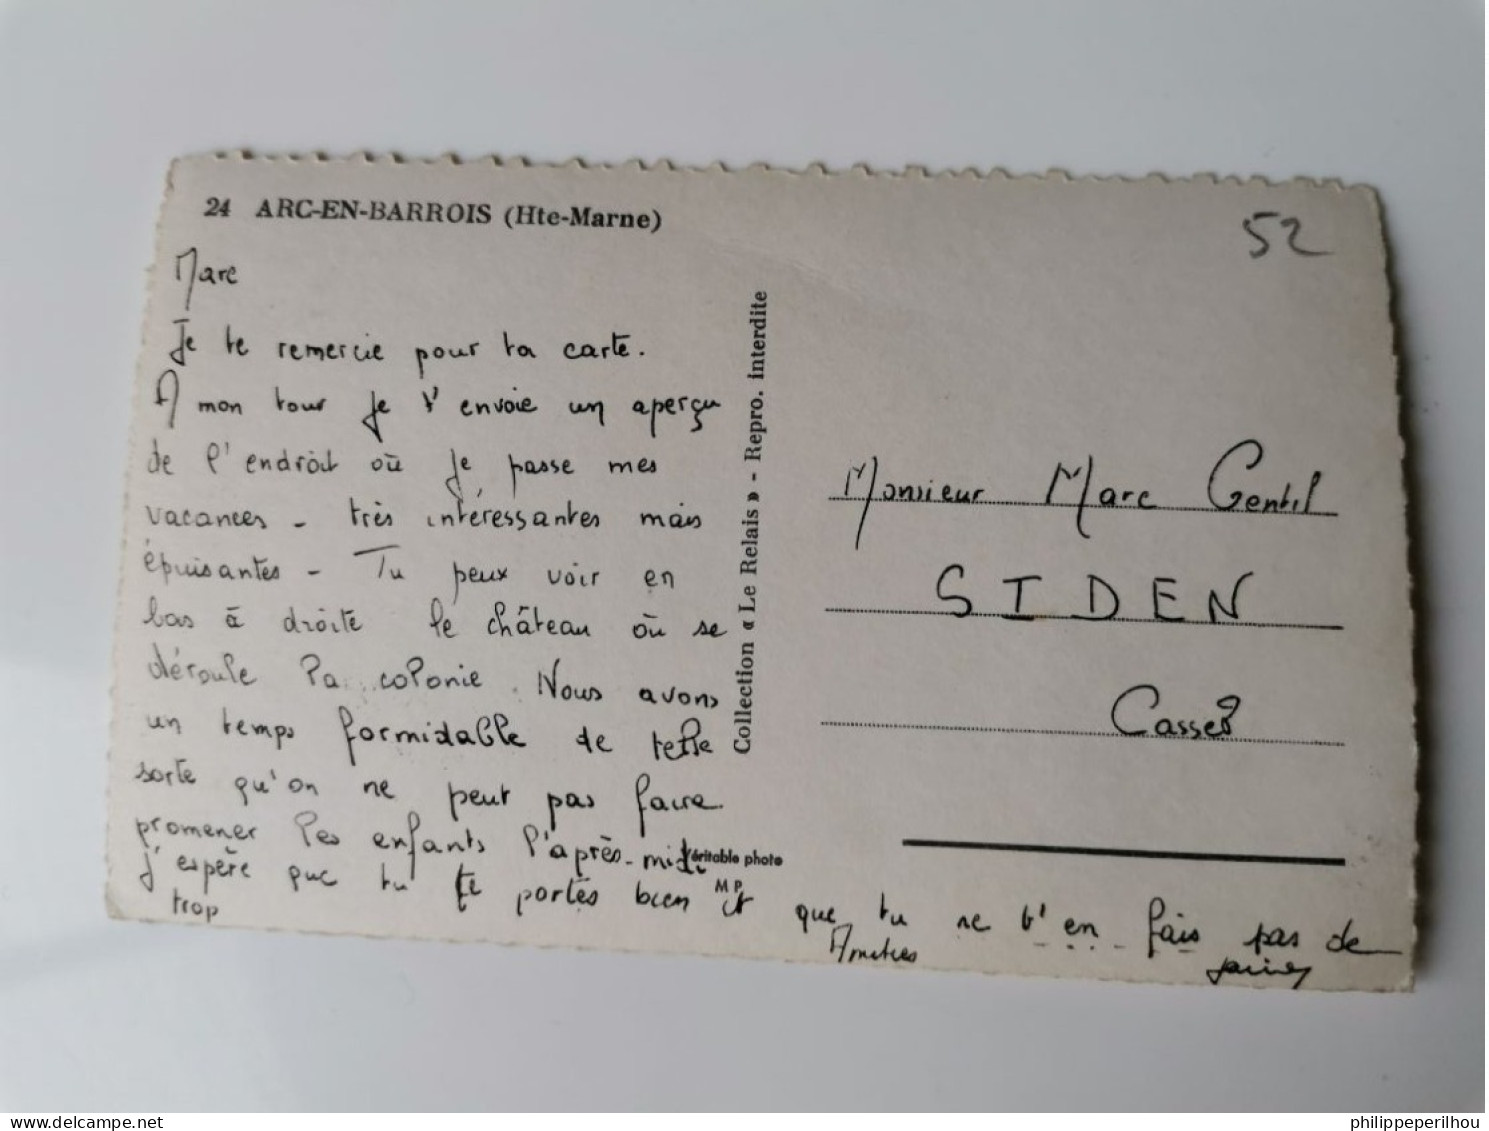 24 ARC-EN-BARROIS (Hte-Marne)
52
Marc
Je te remercie pour ta carte.
A mon tour je t'envoie un aperçu
de l'endroit où je passe mes
vacances - très intéressantes mais
épuisantes - Tu peux voir en
bas à droite le château où se
déroule la colonie. Nous avons
un temps formidable de telle
sorte qu'on ne peut pas faire
promener les enfants l'après-midi
J'espère que tu te portes bien et que tu ne t'en fais pas de
trop
Amitiés
Collection « Le Relais » - Repro. interdite
Véritable photo
M P
Monsieur Marc Gentil
SIDEN
Casseò
philippeperilhou
www.delcampe.net